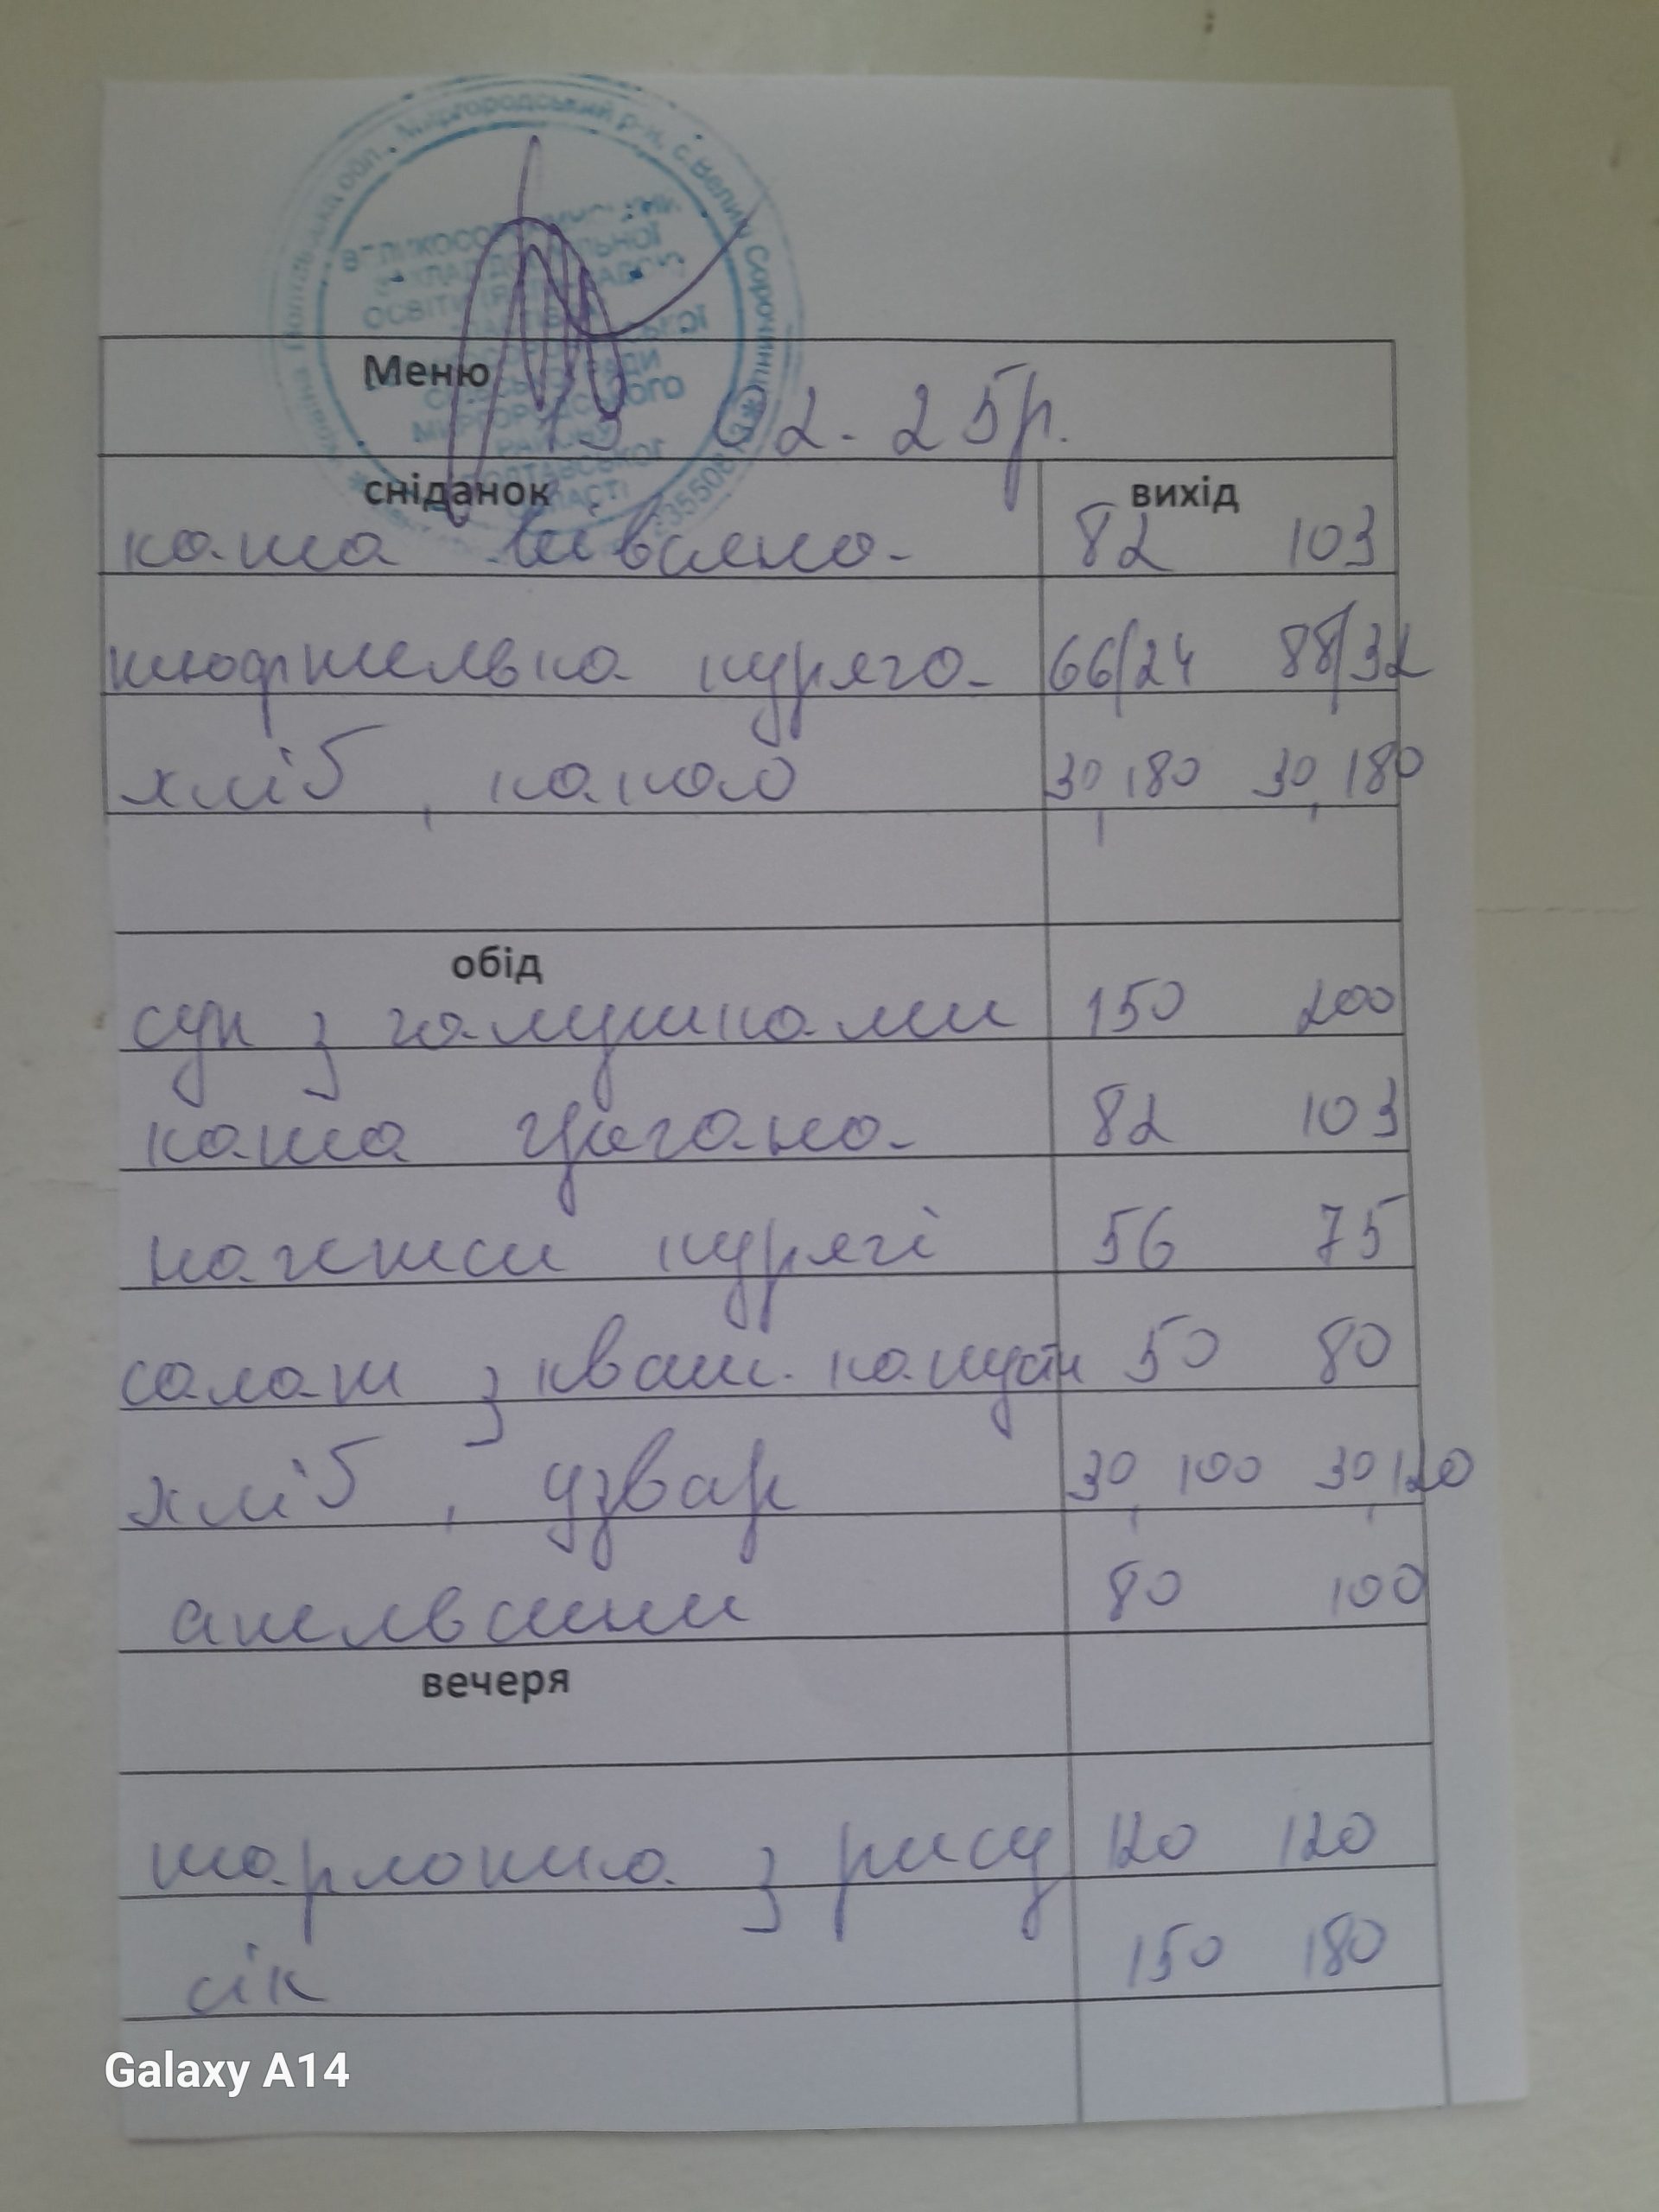 Полтавська обл., Миргородський р-н, с.Великі Сорочинці
ЗАКЛАД ДОШКІЛЬНОЇ
ОСВІТИ
МИРГОРОДСЬКОГО
РАЙОНУ
ПОЛТАВСЬКОЇ
Меню 13 02.25р.
сніданок вихід
каша вівсяна 82 103
тюфтелька куряча 66/24 88/32
хліб, какао 30, 180 30, 180
обід
суп з галушками 150 200
каша гречана 82 103
нагетси курячі 56 75
салат з кваш. капусти 50 80
хліб, узвар 30, 100 30, 120
апельсини 80 100
вечеря
шарлотка з рису 120 120
сік 150 180
Galaxy A14